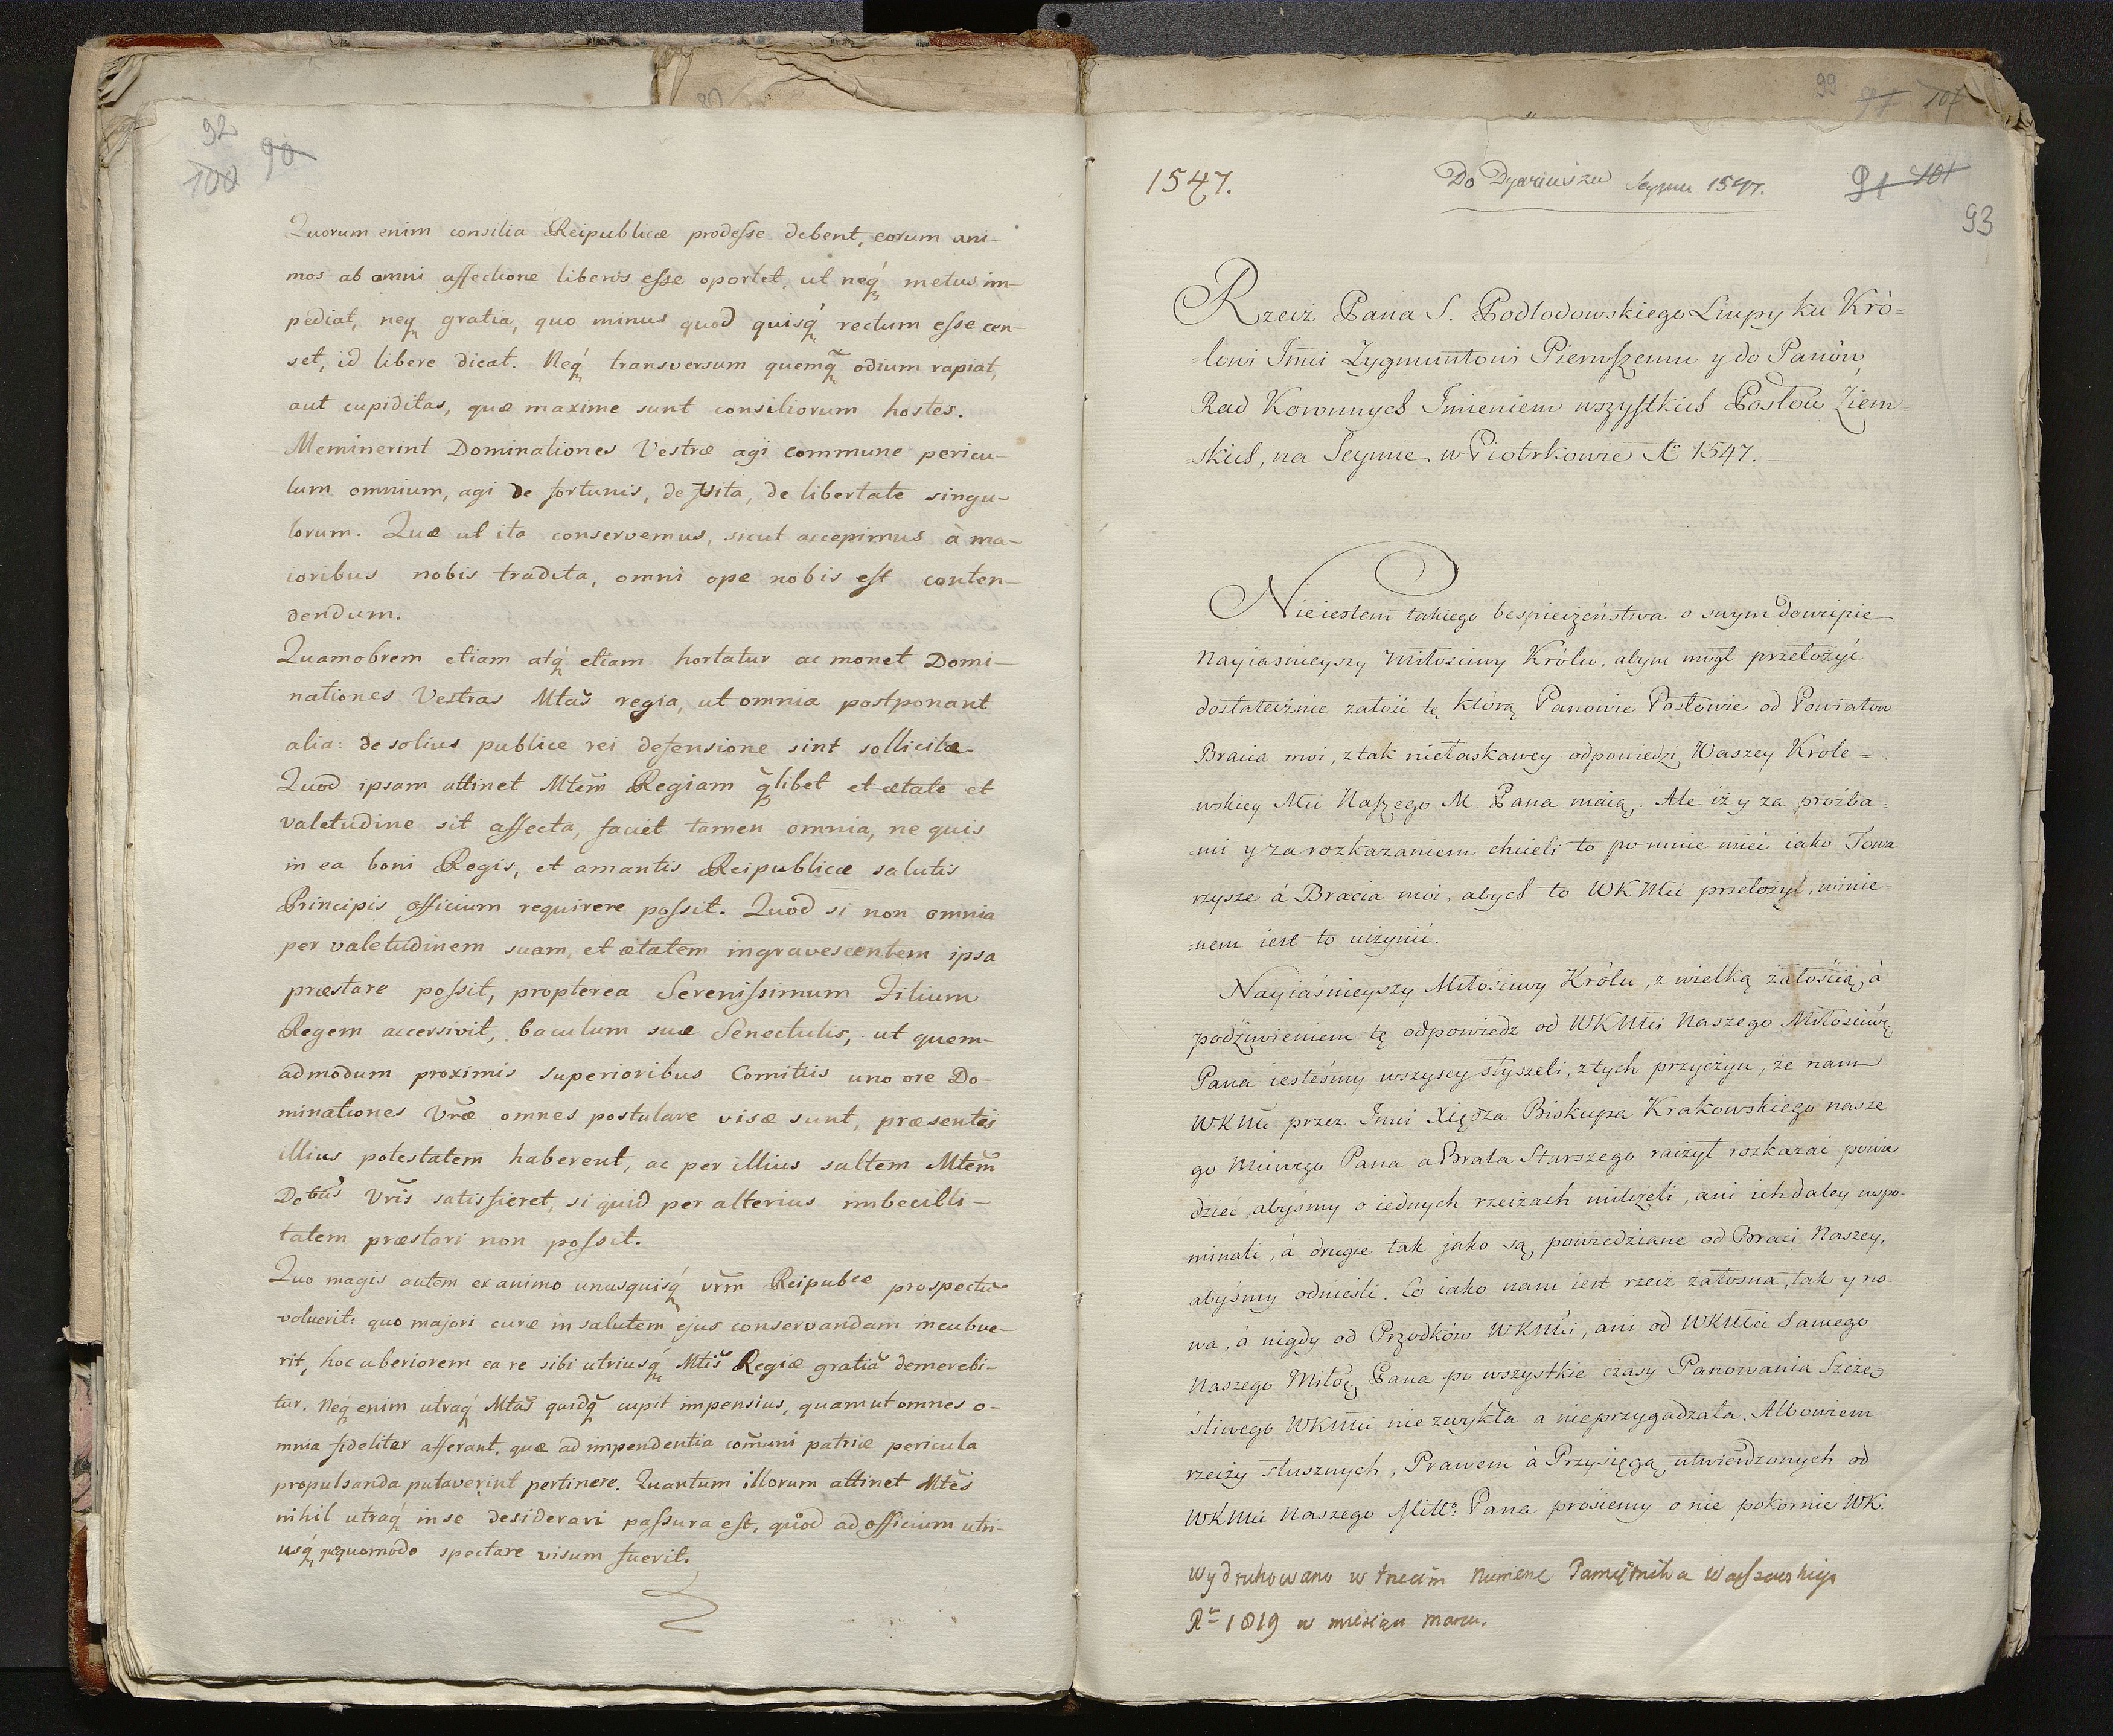 92
100 90
Quorum enim consilia Reipublicæ prodesse debent, eorum ani-
mos ab omni affectione liberos esse oportet, ut neq́ metus im-
pediat, neq gratia, quo minus quod quisq́ rectum esse cen-
set, id libere dicat. Neq́ transversum quemq̃ odium rapiat,
aut cupiditas, quæ maxime sunt consiliorum hostes.
Meminerint Dominationes Vestræ agi commune pericu-
lum omnium, agi de fortunis, de vita, de libertate singu-
lorum. Quæ ut ita conservemus, sicut accepimus à ma-
ioribus nobis tradita, omni ope nobis est conten-
dendum.
Quamobrem etiam atq́ etiam hortatur ac monet Domi-
nationes Vestras Mtas̃ regia, ut omnia postponant
alia: de solius publice rei defensione sint sollicitæ.
Quod ipsam attinet Mtem̃ Regiam q̃libet et ætate et
valetudine sit affecta, faciet tamen omnia, ne quis
in ea boni Regis, et amantis Reipublicæ salutis
Principis officium requirere possit. Quod si non omnia
per valetudinem suam, et ætatem ingravescentem ipsa
præstare possit, propterea Serenissimum Filium
Regem accersivit, baculum suæ Senectutis, ut quem-
admodum proximis superioribus Comitiis uno ore Do-
minationes Vræ̃ omnes postulare visæ sunt, præsentes
illius potestatem haberent, ac per illius saltem Mtem̃
Dobus̃ Vris̃ satisfieret, si quid per alterius imbecilli-
tatem præstari non possit.
Quo magis autem ex animo unusquisq́ vrm̃ Reipubcæ prospectũ
voluerit: quo majori curæ in salutem ejus conservandam incubue-
rit, hoc uberiorem ea re sibi utriusq́ Mtis̃ Regiæ gratiã demerebi-
tur. Neq́ enim utraq́ Mtas̃ quidq̃ cupit impensius, quam ut omnes o-
mnia fideliter afferant, quæ ad impendentia com̃uni patriæ pericula
propulsanda putaverint pertinere. Quantum illorum attinet Mtes̃
nihil utraq́ in se desiderari passura est, quod ad officium utri-
usq́ quoquomodo spectare visum fuerit.
99 97 107
1547. Do Dyariusza Seymu 1547. 91 101
93
Rzecz Pana S. Podlodowskiego Liupy ku Kró=
=lowi Jm̃ci Zygmuntowi Pierwszemu y do Panów
Rad Koronnych Imieniem wszystkich Posłów Ziem=
=skich, na Seymie w Piotrkowie Ao 1547.
Nieiestem takiego bespieczeństwa o swym dowcipie
Nayiasnieyszy Miłosciwy Królu, abym mógł przełożyć
dostatecznie żałość tę którą Panowie Posłowie od Powiatow
Bracia moi, z tak niełaskawey odpowiedzi Waszey Krole=
wskiey Mci Naszego M. Pana maią. Ale iż y za proźba=
=mi y za rozkazaniem chcieli to po mnie mieć iako Towa
rzysze á Bracia moi, abych to WKMci przełożył, winie=
=nem iest to uczynić.
Nayiaśnieyszy Miłościwy Królu, z wielką żałością, á
podziwieniem tę odpowiedz od WKMci Naszego Miłosciwę
Pana iesteśmy wszyscy słyszeli, z tych przyczyn, że nam
WKMć przez Jmci Xiędza Biskupa Krakowskiego nasze
go Mciwego Pana a Brata Starszego raczył rozkazać powie
dzieć, abyśmy o iednych rzeczach milczeli, ani ich daley wspo-
minali, á drugie tak jako są, powiedziane od Braci Naszey,
abyśmy odnieśli. Co iako nam iest rzecz żałosna, tak y no
wa, á nigdy od Przodków WKMci, ani od WKMci Samego
Naszego Miłoę Pana po wszystkie czasy Panowania Szczę
śliwego WKMci niezwykła a nieprzygadzała. Albowiem
rzeczy słusznych, Prawem á Przysięgą utwierdzonych od
WKMci Naszego Miłło: Pana prosiemy o nie pokornie WK
Wydrukowano w trzecim Numerze Pamiętnika Warszawskiego
Ru 1819 w miesiącu marcu.